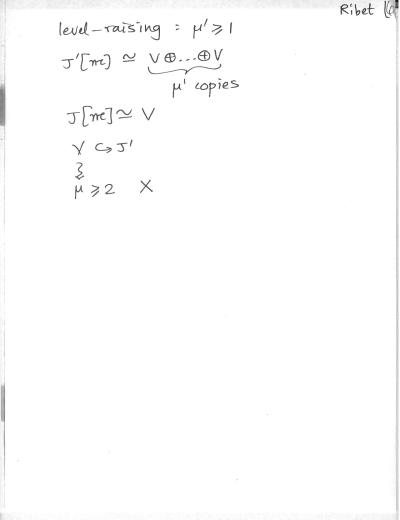 Ribet
level-raising : μ' ⩾ 1
J'[m] ≃ V⊕...⊕V
μ' copies
J[m] ≃ V
V ↪ J'
μ ⩾ 2 X